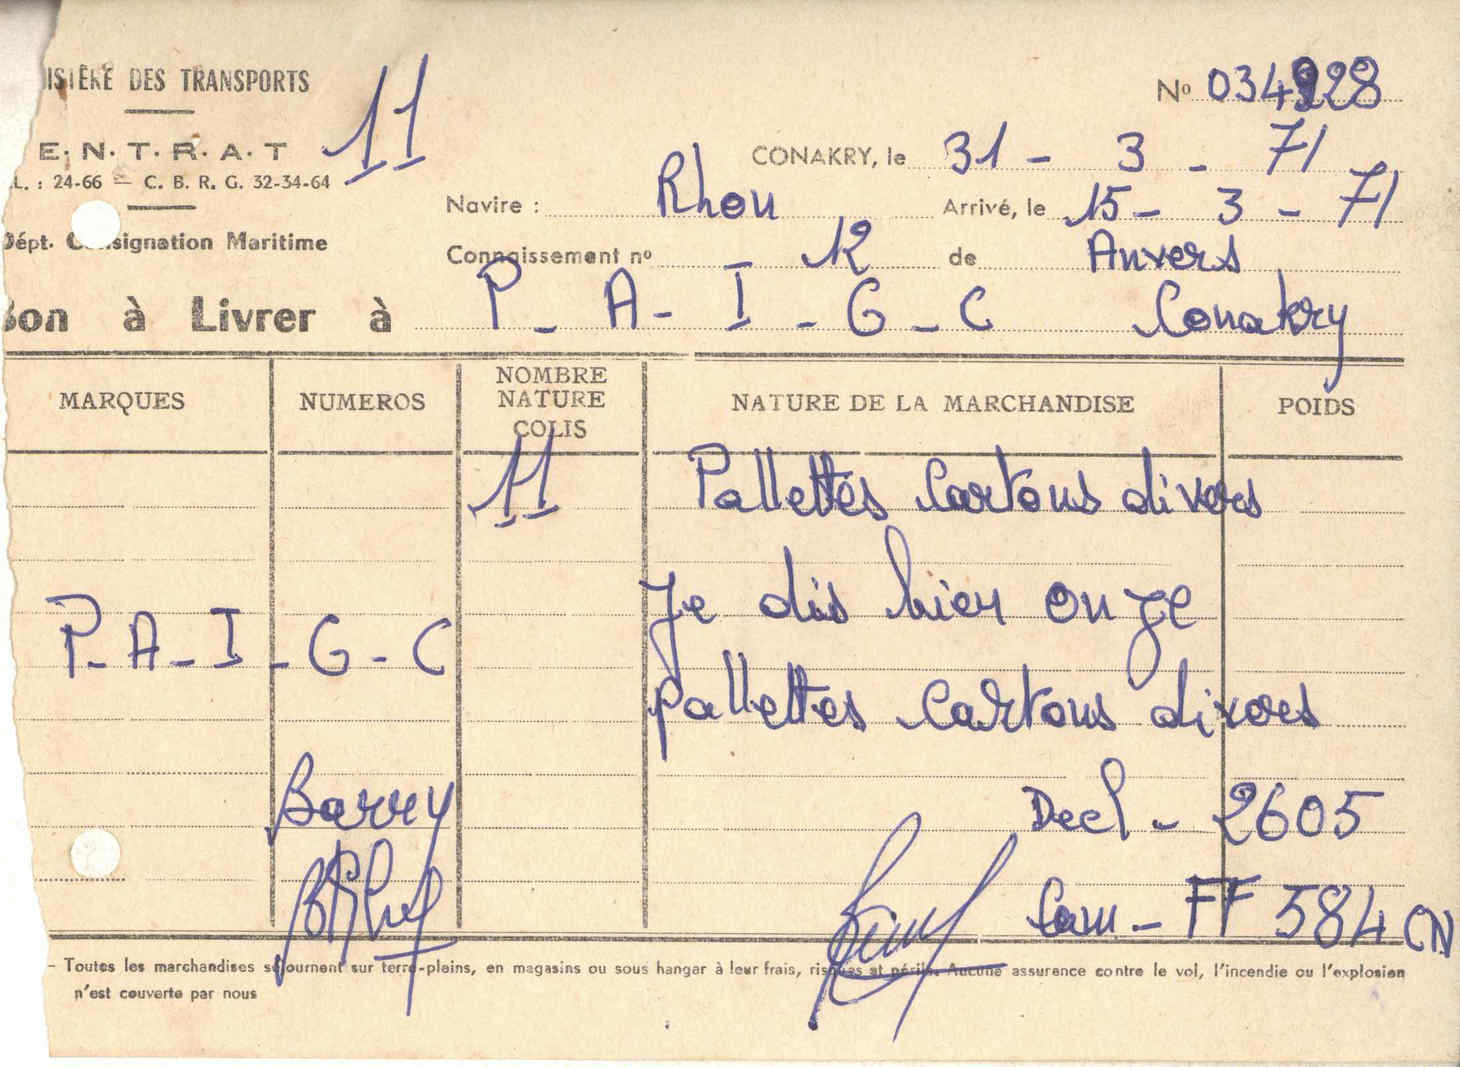 NISTÈRE DES TRANSPORTS
E. N. T. R. A. T
L. : 24-66 — C. B. R. G. 32-34-64
Dépt. Consignation Maritime
11
Nº 034928
CONAKRY, le 31 - 3 - 71
Navire : Rhou Arrivé, le 15 - 3 - 71
Connaissement nº 12 de Anvers
Bon à Livrer à P - A - I - G - C Conakry
MARQUES NUMEROS NOMBRE NATURE COLIS NATURE DE LA MARCHANDISE POIDS
11 Pallettes Cartons divers
Je dis bien onze
P - A - I - G - C
pallettes cartons divers
Barry
Decl - 2605
Cam - FF 584 CN
- Toutes les marchandises séjournent sur terre-pleins, en magasins ou sous hangar à leur frais, risques et périls. Aucune assurance contre le vol, l'incendie ou l'explosion
n'est couverte par nous